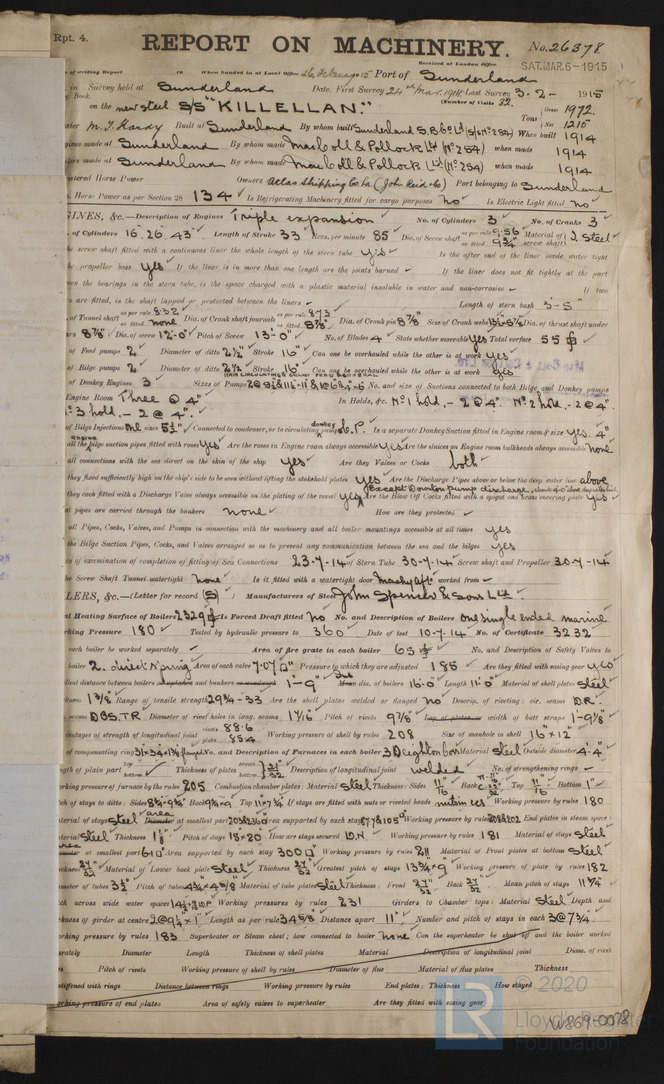 Rpt. 4.
REPORT ON MACHINERY.
No. 26378.
Received at London Office
SAT. MAR. 6 - 1915
of writing Report 19 When handed in at Local Office 26 February 15 Port of Sunderland
in Survey held at Sunderland Date, First Survey 24th Mar. 1914 Last Survey 3-2- 1915
Book. (Number of Visits 32.
on the new steel S/S "KILLELLAN."
Tons Gross 1972. Net 1215
M. J. Hardy Built at Sunderland By whom built Sunderland S.B. Co Ltd When built 1914
made at Sunderland By whom made MacColl & Pollock Ltd (No 254) when made 1914
made at Sunderland By whom made MacColl & Pollock Ltd (No 254) when made 1914
Horse Power Owners Atlas Shipping Co Ld (John Reid & Co) Port belonging to Sunderland
Horse Power as per Section 28 134 Is Refrigerating Machinery fitted for cargo purposes No Is Electric Light fitted No
INES, &c.—Description of Engines Triple expansion No. of Cylinders 3 No. of Cranks 3
of Cylinders 16. 26. 43 Length of Stroke 33 Revs. per minute 85 Dia. of Screw shaft as per rule 9.56 as fitted 9 3/4 Material of screw shaft Steel
the screw shaft fitted with a continuous liner the whole length of the stern tube yes Is the after end of the liner made water tight
the propeller boss yes If the liner is in more than one length are the joints burned – If the liner does not fit tightly at the part
the bearings in the stern tube, is the space charged with a plastic material insoluble in water and non-corrosive – If two
are fitted, is the shaft lapped or protected between the liners – Length of stern bush 3-5
of Tunnel shaft as per rule 8.32 as fitted none Dia. of Crank shaft journals as per rule 8.73 as fitted 8 7/8 Dia. of Crank pin 8 7/8 Size of Crank webs Dia. of thrust shaft under
8 7/8 Dia. of screw 12'-0" Pitch of Screw 13'-0" No. of Blades 4 State whether moveable yes Total surface 55
of Feed pumps 2 Diameter of ditto 2 1/2 Stroke 16" Can one be overhauled while the other is at work yes
of Bilge pumps 2 Diameter of ditto 2 1/2 Stroke 16" Can one be overhauled while the other is at work yes
of Donkey Engines 3 Sizes of Pumps No. and size of Suctions connected to both Bilge and Donkey pumps
Engine Room Three @ 4" In Holds, &c. No 1 hold, - 2 @ 4". No 2 hold, - 2 @ 4".
No 3 hold, - 2 @ 4".
of Bilge Injections one sizes 5 1/2" Connected to condenser, or to circulating pump C.P. Is a separate Donkey Suction fitted in Engine room & size yes. 4"
all the bilge suction pipes fitted with roses yes Are the roses in Engine room always accessible yes Are the sluices on Engine room bulkheads always accessible none
all connections with the sea direct on the skin of the ship yes Are they Valves or Cocks both
they fixed sufficiently high on the ship's side to be seen without lifting the stokehold plates yes Are the Discharge Pipes above or below the deep water line above
(except Downton pump discharge,
they each fitted with a Discharge Valve always accessible on the plating of the vessel yes Are the Blow Off Cocks fitted with a spigot and brass covering plate yes
pipes are carried through the bunkers none How are they protected –
all Pipes, Cocks, Valves, and Pumps in connection with the machinery and all boiler mountings accessible at all times yes
the Bilge Suction Pipes, Cocks, and Valves arranged so as to prevent any communication between the sea and the bilges yes
of examination of completion of fitting of Sea Connections 23-7-14 of Stern Tube 30-7-14 Screw shaft and Propeller 30-7-14
the Screw Shaft Tunnel watertight none Is it fitted with a watertight door Machy aft worked from –
LERS, &c.—(Letter for record (S)) Manufacturers of Steel John Spencer & Sons Ltd.
Heating Surface of Boilers 2329 Is Forced Draft fitted No No. and Description of Boilers one single ended marine
Working Pressure 180 Tested by hydraulic pressure to 360 Date of test 10-7-14 No. of Certificate 3232
each boiler be worked separately – Area of fire grate in each boiler 65 No. and Description of Safety Valves to
boiler 2. direct spring Area of each valve 7.07 Pressure to which they are adjusted 185 Are they fitted with easing gear yes
distance between boilers or uptakes and bunkers 1'-9" dia. of boilers 16'-0 Length 11'-0" Material of shell plates steel
1 3/8 Range of tensile strength 29 3/4 - 33 Are the shell plates welded or flanged no Descrip. of riveting: cir. seams D.R.
seams D.B.S.T.R Diameter of rivet holes in long. seams 1 7/16 Pitch of rivets 9 7/8 width of butt straps 1'-9 1/8"
of strength of longitudinal joint rivets 88.6 plate 85.4 Working pressure of shell by rules 208 Size of manhole in shell 16" x 12"
of compensating ring No. and Description of Furnaces in each boiler 3 Deighton bars Material Steel Outside diameter 4'-4"
of plain part top bottom Thickness of plates crown bottom Description of longitudinal joint welded No. of strengthening rings –
Working pressure of furnace by the rules 205 Combustion chamber plates: Material Steel Thickness: Sides 11/16 Back Top 11/16 Bottom 1"
of stays to ditto: Sides Back Top 11 x 7 3/4 If stays are fitted with nuts or riveted heads nuts in ccs Working pressure by rules 180
of stays steel area at smallest part Area supported by each stay Working pressure by rules End plates in steam space
Material Steel Thickness 1 1/8 Pitch of stays 15 x 20 How are stays secured D.N. Working pressure by rules 181 Material of stays Steel
at smallest part 610 Area supported by each stay 300 Working pressure by rules 211 Material of Front plates at bottom Steel
27/32 Material of Lower back plate Steel Thickness 27/32 Greatest pitch of stays 13 3/4 x 9 Working pressure of plate by rules 182
Diameter of tubes 3 1/2 Pitch of tubes 4 3/4 x 4 5/8 Material of tube plates Steel Thickness: Front 27/32 Back 27/32 Mean pitch of stays 11 3/4
across wide water spaces Working pressures by rules 231 Girders to Chamber tops: Material Steel Depth and
of girder at centre Length as per rule 34 5/8 Distance apart 11" Number and pitch of stays in each 3 @ 7 3/4
Working pressure by rules 183 Superheater or Steam chest; how connected to boiler none Can the superheater be shut off and the boiler worked
separately Diameter Length Thickness of shell plates Material Description of longitudinal joint Diam. of rivet
Pitch of rivets Working pressure of shell by rules Diameter of flue Material of flue plates Thickness
stiffened with rings Distance between rings Working pressure by rules End plates: Thickness How stayed
Working pressure of end plates Area of safety valves to superheater Are they fitted with easing gear
© 2020
LR
Lloyd's Register
Foundation
W869-0078